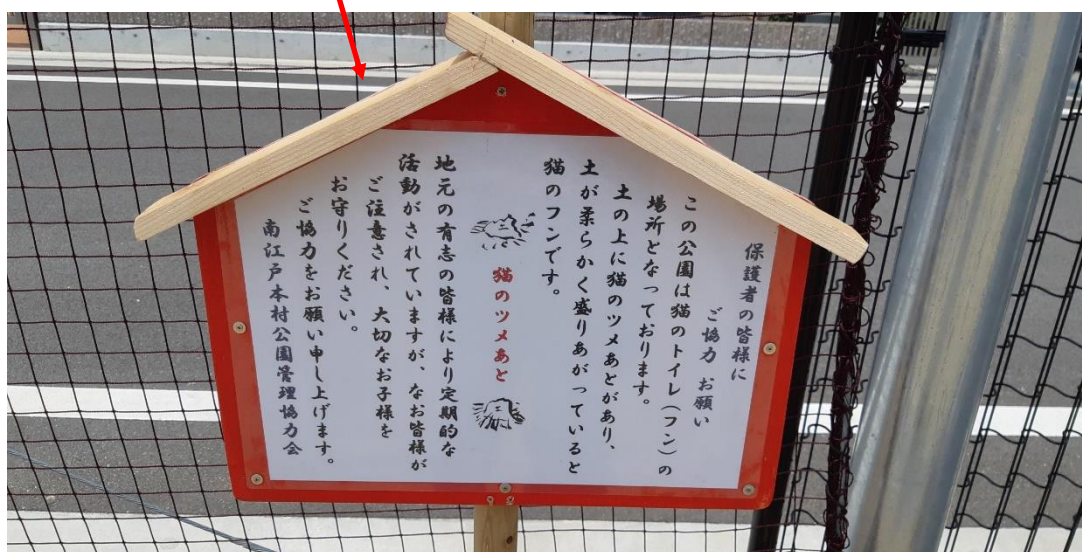 保護者の皆様に
ご協力 お願い
この公園は猫のトイレ(フン)の
場所となっております。
土の上に猫のツメあとがあり、
土が柔らかく盛りあがっていると
猫のフンです。
猫のツメあと
地元の有志の皆様により定期的な
活動がされていますが、なお皆様が
ご注意され、大切なお子様を
お守りください。
ご協力をお願い申し上げます。
南江戸本村公園管理協力会